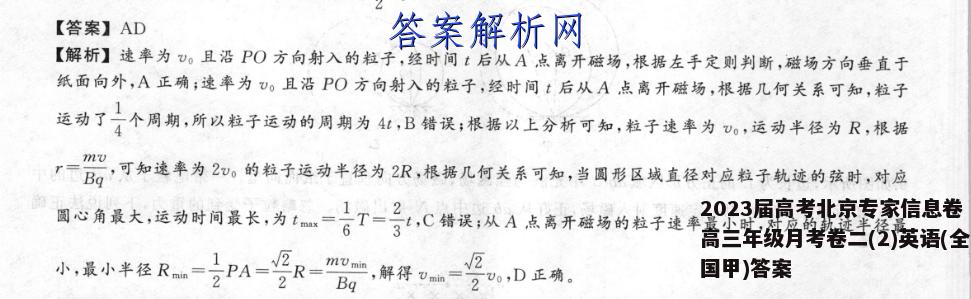 2
答案解析网
【答案】AD
【解析】速率为 v₀ 且沿 PO 方向射入的粒子,经时间 t 后从 A 点离开磁场,根据左手定则判断,磁场方向垂直于
纸面向外,A 正确;速率为 v₀ 且沿 PO 方向射入的粒子,经时间 t 后从 A 点离开磁场,根据几何关系可知,粒子
运动了 1/4 个周期,所以粒子运动的周期为 4t,B 错误;根据以上分析可知,粒子速率为 v₀,运动半径为 R,根据
r=mv/Bq,可知速率为 2v₀ 的粒子运动半径为 2R,根据几何关系可知,当圆形区域直径对应粒子轨迹的弦时,对应
圆心角最大,运动时间最长,为 t_max=1/6 T=2/3 t,C 错误;从 A 点离开磁场的粒子速率最小时,对应的轨迹半径最
小,最小半径 R_min=1/2 PA=√2/2 R=mv_min/Bq,解得 v_min=√2/2 v₀,D 正确。
2023届高考北京专家信息卷
高三年级月考卷二(2)英语(全
国甲)答案